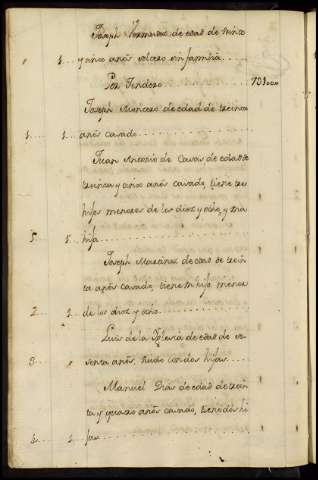 Joseph de edad de treinta
1.... y cinco años soltero enfermizo....
Por Tendero......... 701
Joseph Moncero de edad de treinta
1.... 1. años casado.........
Juan Antonio de Casas de edad de
treinta y cinco años casado, tiene tres
hijos menores de los diez y ocho, y una
5.... 1. hija.........
Joseph Martinez de edad de trein
ta años casado, tiene un hijo menor
2.... 2. de los diez y ocho.......
Luis de la Iglesia de edad de se
3.... senta años, viudo con dos hijas....
Manuel Dias de edad de trein
ta y quatro años casado, tiene dos hi
4.... 1. jas.........